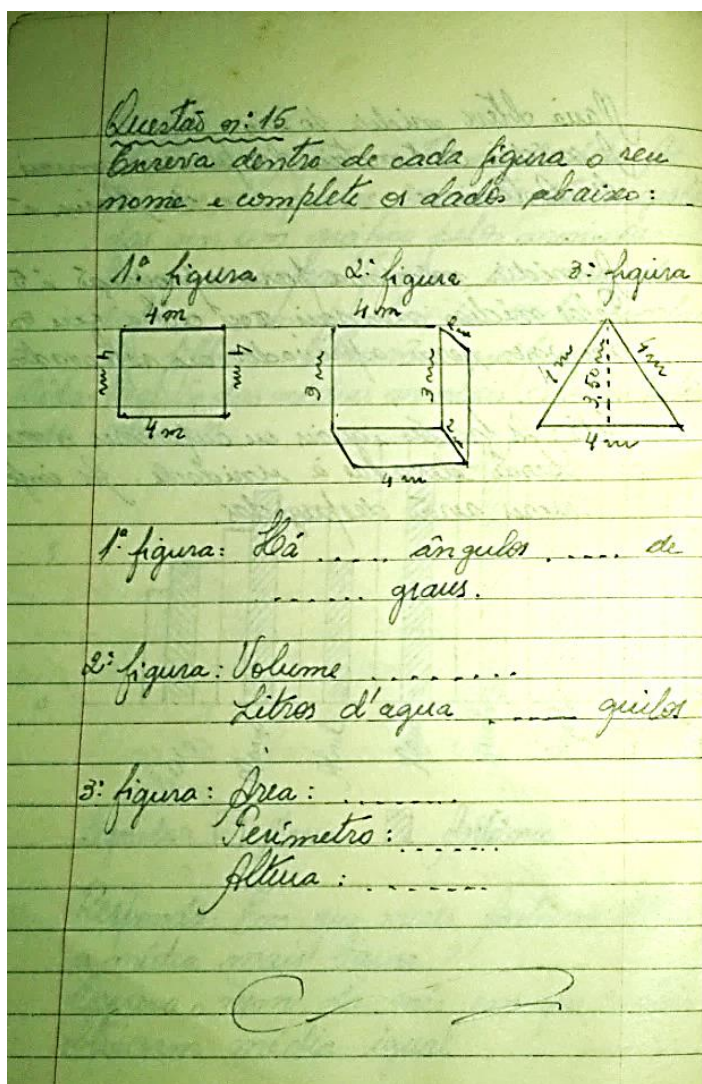 Questão nº: 15
Escreva dentro de cada figura o seu
nome e complete os dados abaixo:
1ª figura 2ª figura 3ª figura
4 m 4 m
4 m 4 m 2 m 4 m 4 m
3 m 3 m 3,50 m
4 m 2 m 4 m
4 m
1ª figura: Há ..... ângulos ..... de
....... graus.
2ª figura: Volume ........
Litros d'agua ...... quilos
3ª figura: Área: ........
Perímetro: .......
Altura: ........